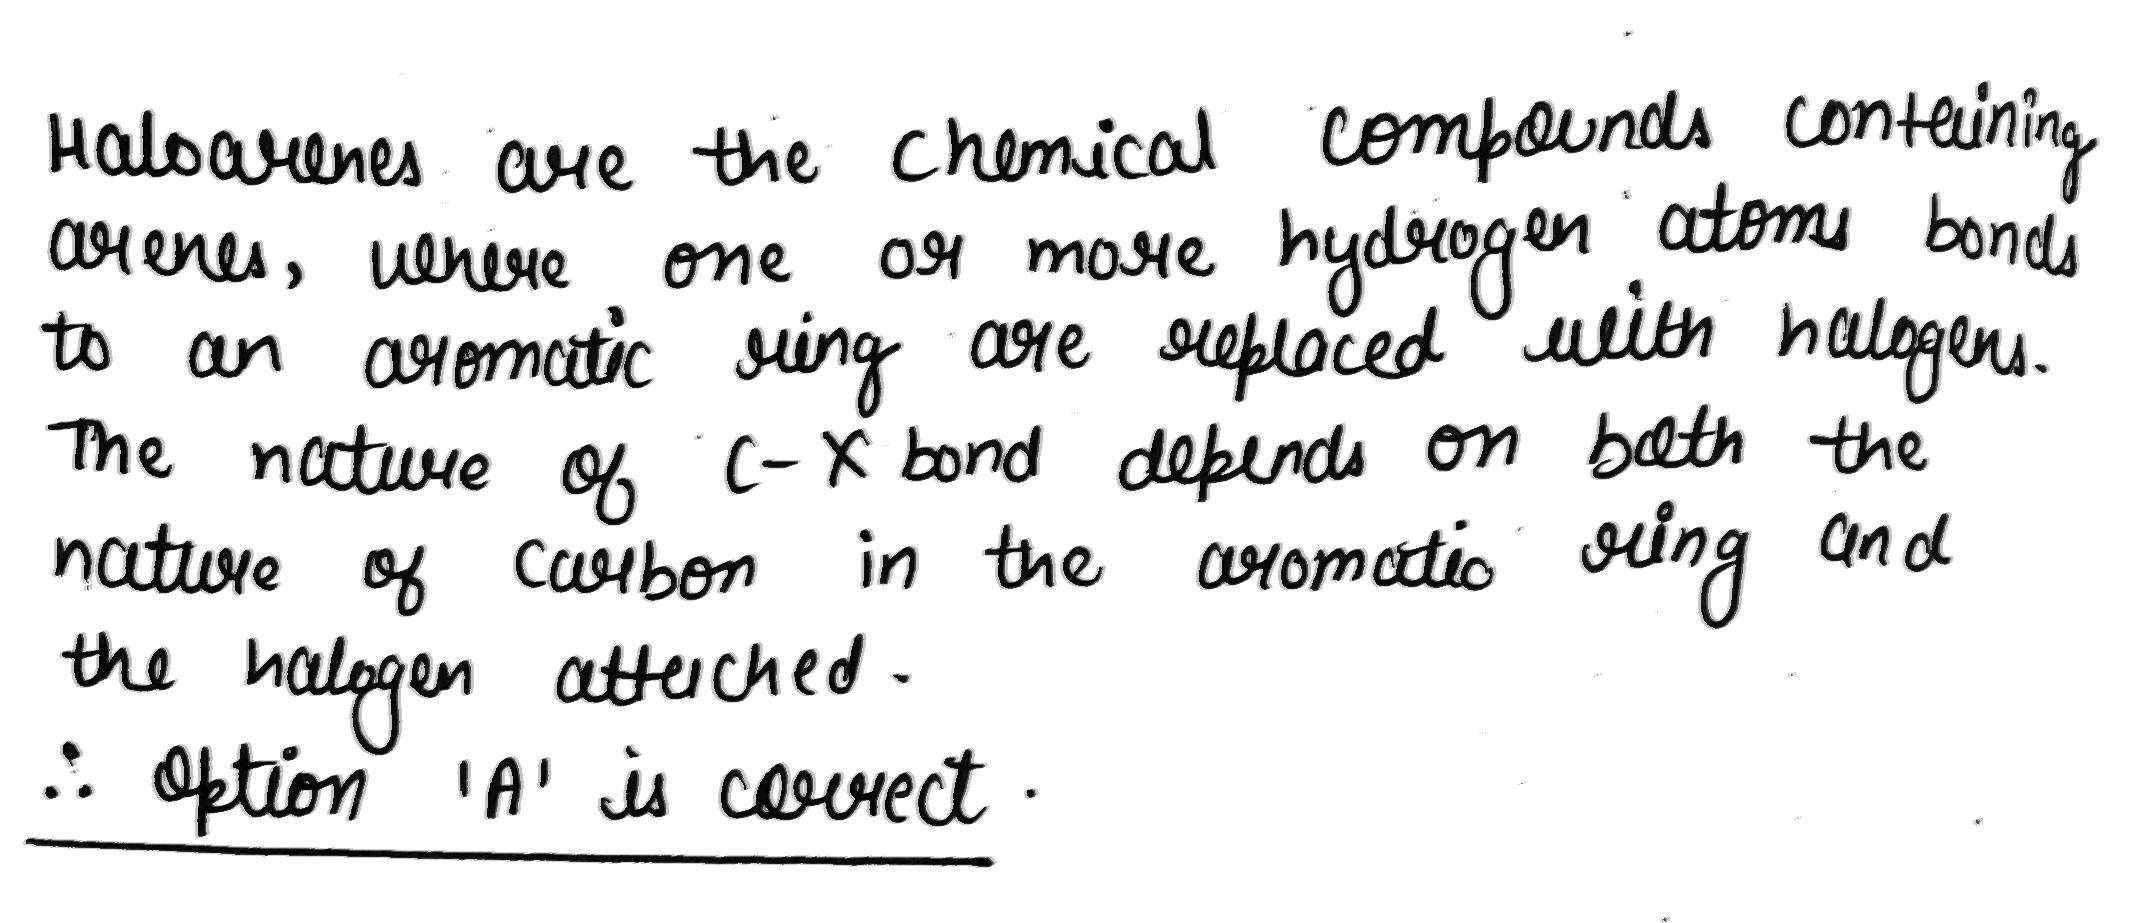 Haloarenes are the chemical compounds containing
arenes, where one or more hydrogen atoms bonds
to an aromatic ring are replaced with halogens.
The nature of C-X bond depends on both the
nature of carbon in the aromatic ring and
the halogen attached.
∴ Option 'A' is correct.